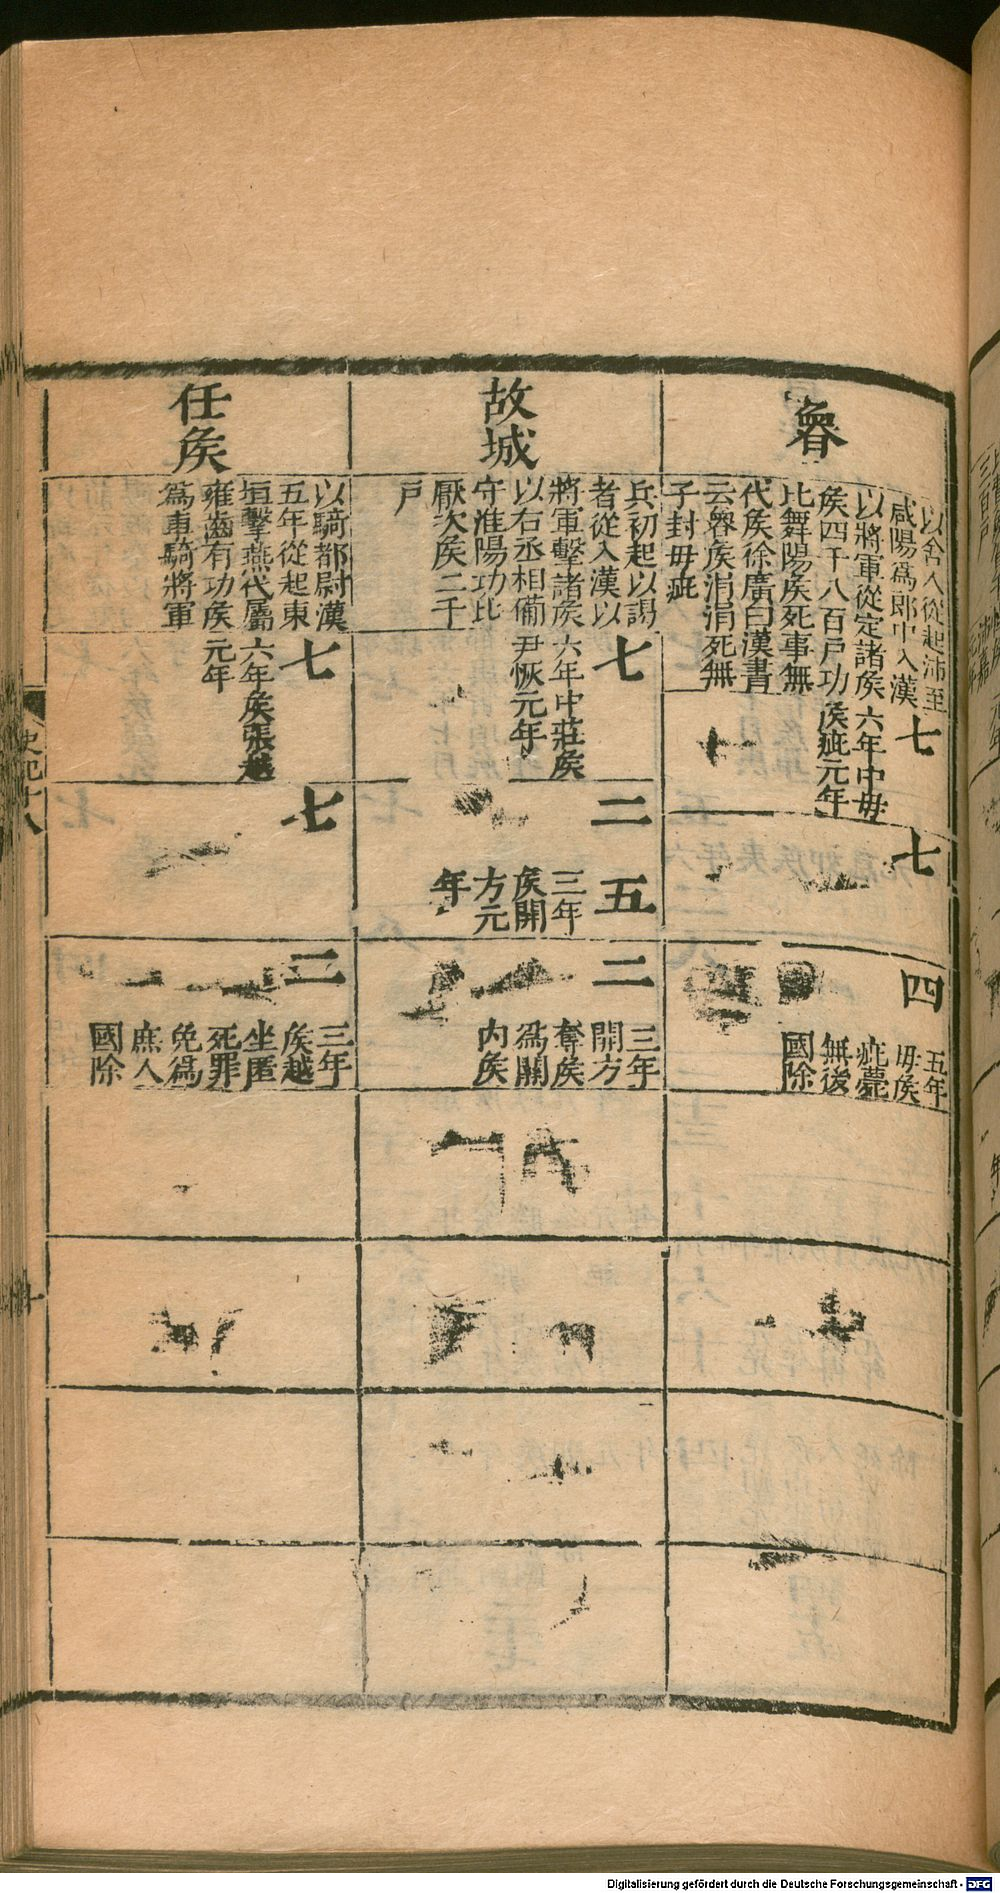 以舍人從起沛至
咸陽爲郎中入漢
以將軍從定諸侯
侯四千八百戶功
比舞陽侯死事無
代侯徐廣曰漢書
云魯侯涓涓死無
子封毋疵
七
六年中毋
侯疵元年
七
四
五年
毋侯
疵薨
無後
國除
故城
兵初起以謁
者從入漢以
將軍擊諸侯
以右丞相備
守淮陽功比
厭次侯二千
戶
七
六年中莊侯
尹恢元年
二
五
三年
侯開
方元
年
二
三年
開方
奪侯
爲關
内侯
任侯
以騎都尉漢
五年從起東
垣擊燕代屬
雍齒有功侯
爲車騎將軍
七
六年侯張越
元年
七
二
三年
侯越
坐匿
死罪
免爲
庶人
國除
史記十八
Digitalisierung gefördert durch die Deutsche Forschungsgemeinschaft - DFG